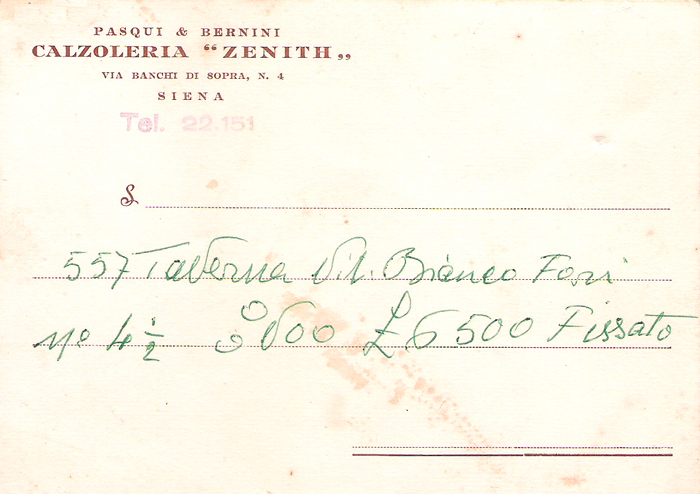 PASQUI & BERNINI
CALZOLERIA “ZENITH„
VIA BANCHI DI SOPRA, N. 4
SIENA
Tel. 22.151
S.
557 Taverna Vit. Bianco Fori
nº 4 1/2 £ 6500 Fissato